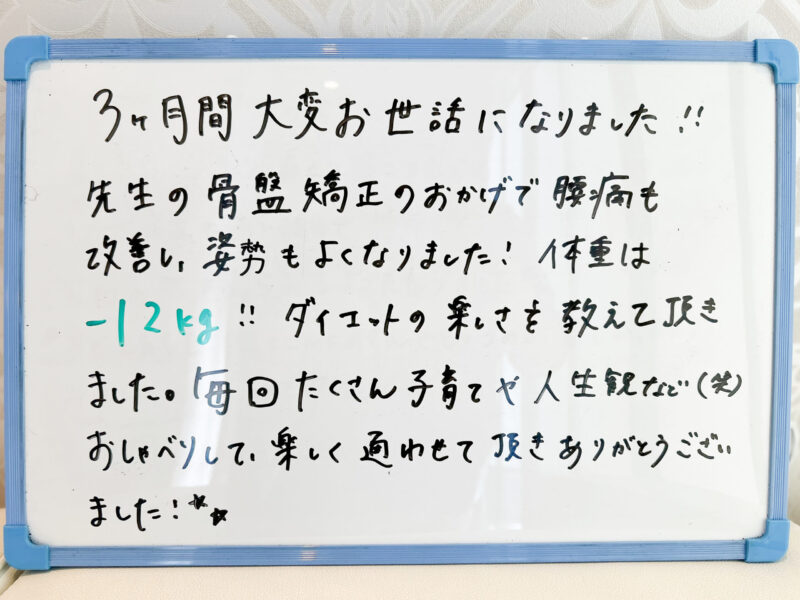 3ヶ月間大変お世話になりました!!
先生の骨盤矯正のおかげで腰痛も
改善し、姿勢もよくなりました! 体重は
-12kg!! ダイエットの楽しさを教えて頂き
ました。毎回たくさん子育てや人生観など(笑)
おしゃべりして、楽しく通わせて頂きありがとうござい
ました!☆☆